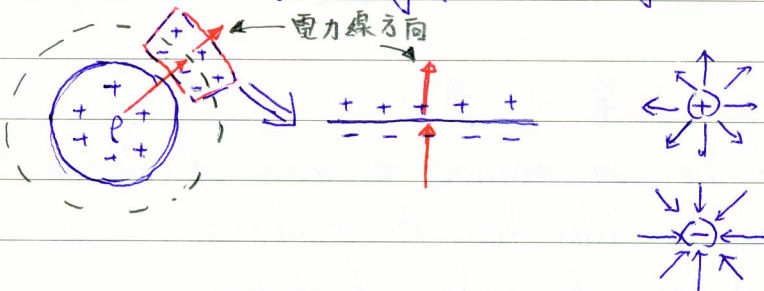 電力線方向
+ + + + +
- - - - -
ρ
+
-